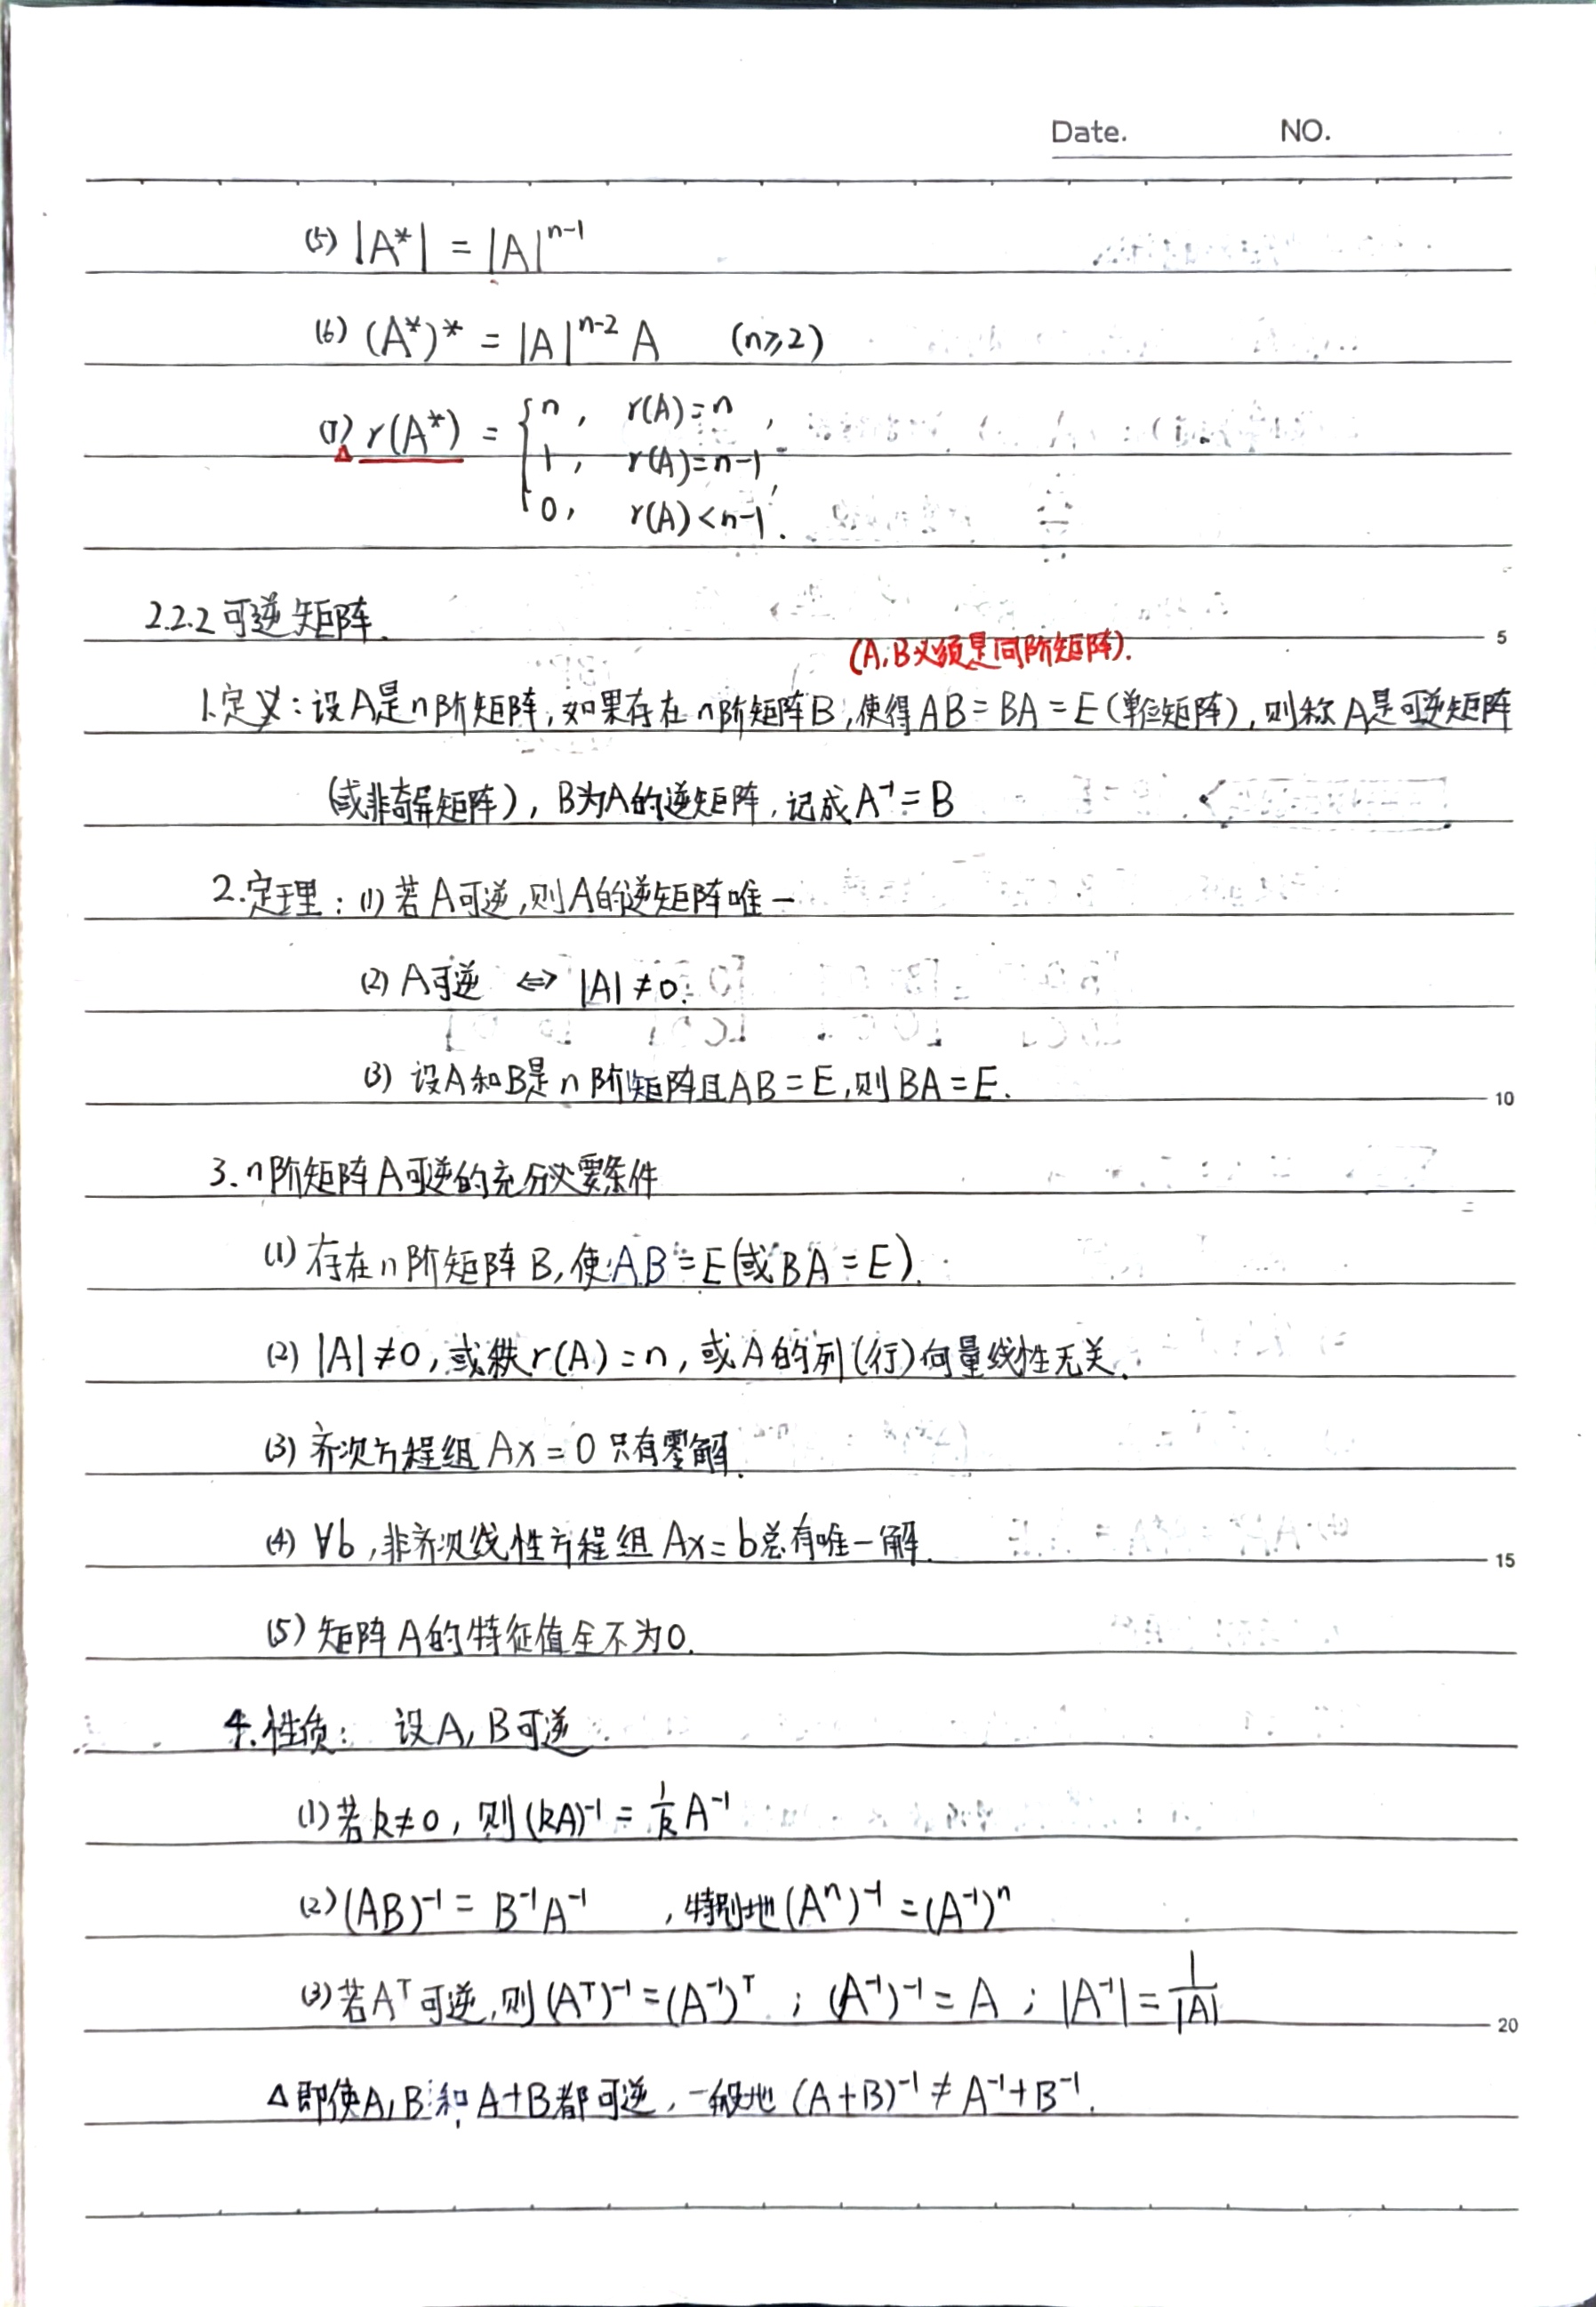 Date. NO.
(5) |A*| = |A|ⁿ⁻¹
(6) (A*)* = |A|ⁿ⁻² A (n≥2)
(7) r(A*) = { n, r(A)=n,
1, r(A)=n-1,
0, r(A)<n-1.
2.2.2 可逆矩阵.
5
(A,B必须是同阶矩阵).
1.定义:设A是n阶矩阵,如果存在n阶矩阵B,使得AB=BA=E(单位矩阵),则称A是可逆矩阵
(或非奇异矩阵),B为A的逆矩阵,记成A⁻¹=B
2.定理:(1)若A可逆,则A的逆矩阵唯一
(2) A可逆 ⇔ |A|≠0.
(3) 设A和B是n阶矩阵且AB=E,则BA=E.
10
3.n阶矩阵A可逆的充分必要条件
(1) 存在n阶矩阵B,使AB=E(或BA=E).
(2) |A|≠0,或秩r(A)=n,或A的列(行)向量线性无关.
(3) 齐次方程组Ax=0只有零解.
(4) ∀b,非齐次线性方程组Ax=b总有唯一解.
15
(5) 矩阵A的特征值全不为0.
4.性质: 设A,B可逆
(1)若k≠0,则(kA)⁻¹=1/k A⁻¹
(2)(AB)⁻¹=B⁻¹A⁻¹ ,特别地(Aⁿ)⁻¹=(A⁻¹)ⁿ
(3)若Aᵀ可逆,则(Aᵀ)⁻¹=(A⁻¹)ᵀ ; (A⁻¹)⁻¹=A ; |A⁻¹|=1/|A|
20
Δ即使A,B和A+B都可逆,一般地(A+B)⁻¹≠A⁻¹+B⁻¹.